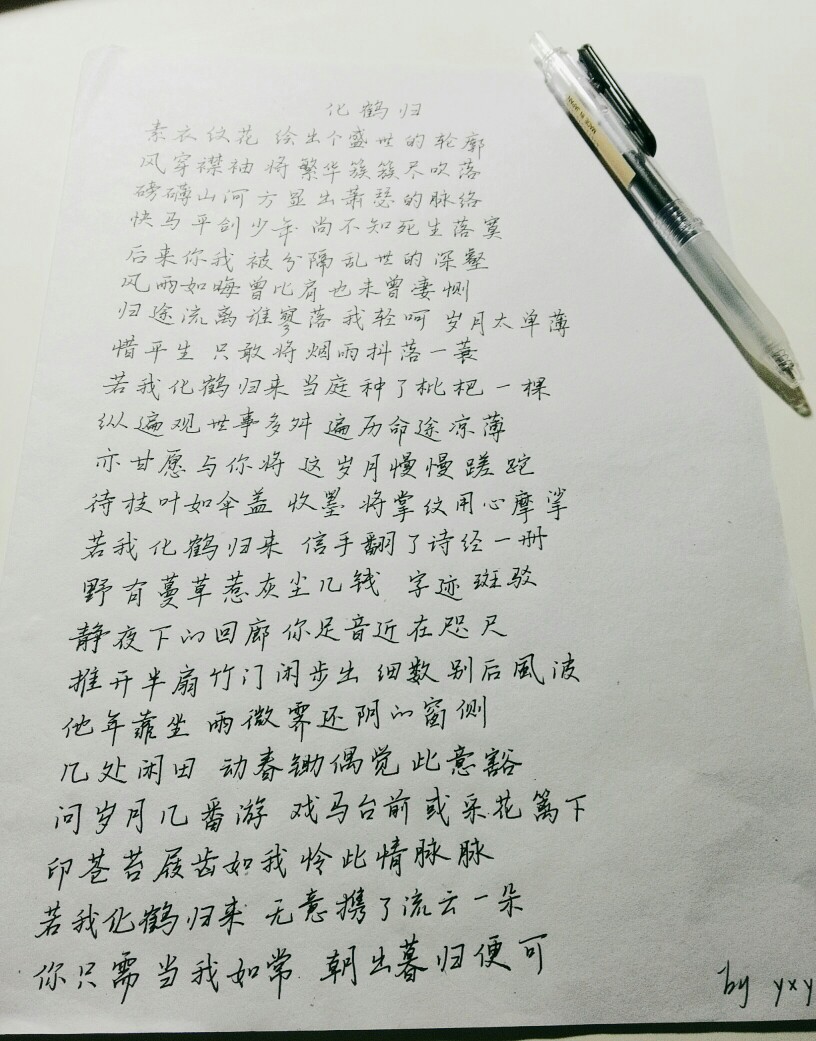 化鹤归
素衣纹花 绘出个盛世的轮廓
风穿襟袖 将繁华簇簇尽吹落
磅礴山河方显出萧瑟的脉络
快马平剑少年 尚不知死生落寞
后来你我 被分隔乱世的深壑
风雨如晦曾比肩也未曾凄恻
归途流离谁寥落我轻呵 岁月太单薄
惜平生 只敢将烟雨抖落一蓑
若我化鹤归来 当庭种了枇杷一棵
纵遍观世事多舛 遍历命途凉薄
亦甘愿与你将 这岁月慢慢蹉跎
待枝叶如伞盖 收墨 将掌纹用心摩挲
若我化鹤归来 信手翻了诗经一册
野有蔓草惹灰尘几钱 字迹斑驳
静夜下的回廊你足音近在咫尺
推开半扇竹门闲步出 细数别后風波
他年靠坐 雨微霁还阴的窗侧
几处闲田 动春锄偶觉此意豁
问岁月几番游 戏马台前或采花篱下
印苍苔屐齿如我 怜此情脉脉
若我化鹤归来 无意携了流云一朵
你只需当我如常 朝出暮归便可
by yxy